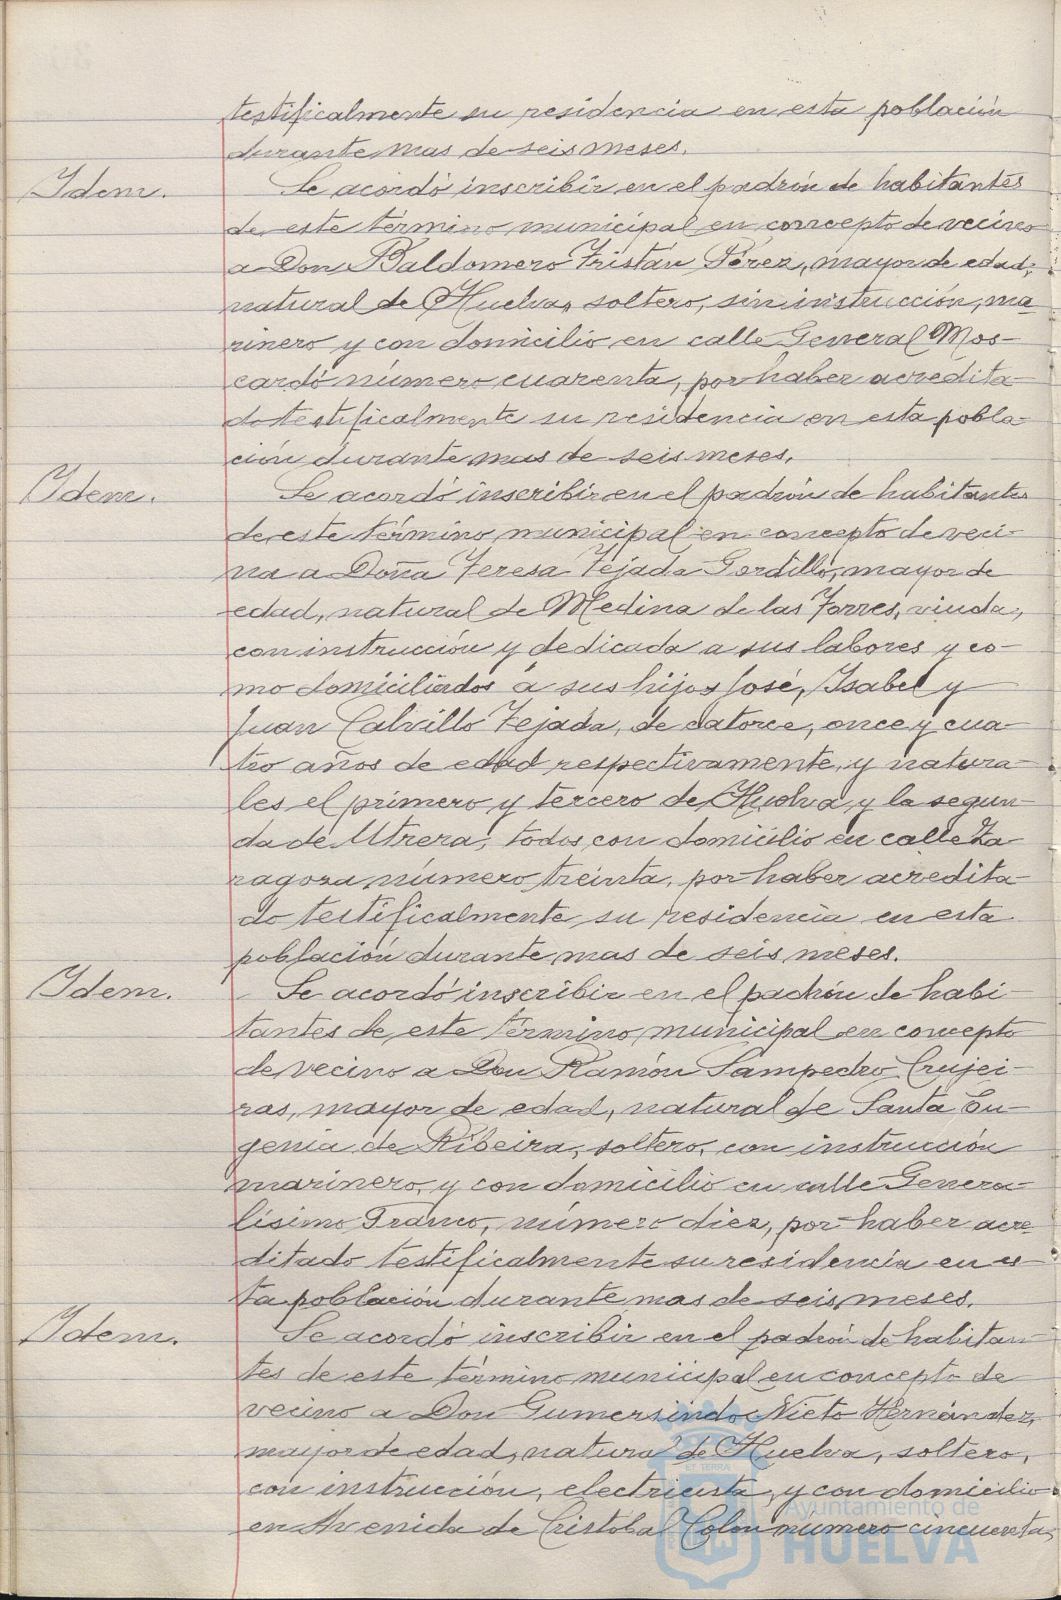 testificalmente su residencia en esta población
durante mas de seis meses.
Idem.
Se acordó inscribir en el padrón de habitantes
de este término municipal en concepto de vecino
a Don Baldomero Tristán Pérez, mayor de edad,
natural de Huelva, soltero, sin instrucción, ma-
rinero y con domicilio en calle General Mos-
cardó número cuarenta, por haber acredita-
do testificalmente su residencia en esta pobla-
ción durante mas de seis meses.
Idem.
Se acordó inscribir en el padrón de habitantes
de este término municipal en concepto de veci-
na a Doña Teresa Tejada Gordillo, mayor de
edad, natural de Medina de las Torres, viuda,
con instrucción y dedicada a sus labores y co-
mo domiciliados a sus hijos José, Isabel y
Juan Calvillo Tejada, de catorce, once y cua-
tro años de edad respectivamente, y natura-
les el primero y tercero de Huelva y la segun-
da de Utrera, todos con domicilio en calle Za
ragoza número treinta, por haber acredita-
do testificalmente su residencia en esta
población durante mas de seis meses.
Idem.
Se acordó inscribir en el padrón de habi-
tantes de este término municipal en concepto
de vecino a Don Ramón Sampedro Crujei-
ras, mayor de edad, natural de Santa Eu-
genia de Ribeira, soltero, con instrucción
marinero, y con domicilio en calle Genera-
lísimo Franco, número diez, por haber acre-
ditado testificalmente su residencia en es-
ta población durante mas de seis meses.
Idem.
Se acordó inscribir en el padrón de habitan-
tes de este término municipal en concepto de
vecino a Don Gumersindo Nieto Hernández,
mayor de edad, natural de Huelva, soltero,
con instrucción, electricista, y con domicilio
en Avenida de Cristobal Colon numero cincuenta,
Ayuntamiento de
HUELVA